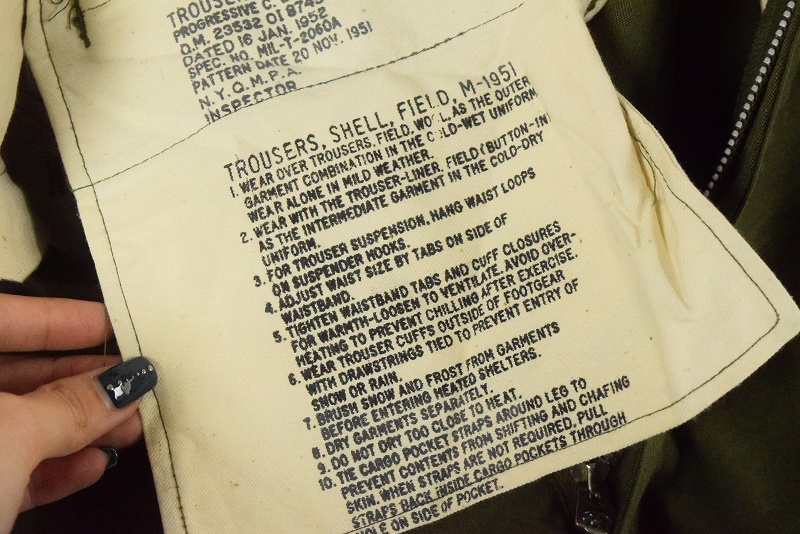 TROUSE
PROGRESSIVE C.
Q.M. 23532 O1 8745
DATED 16 JAN. 1952
SPEC. NO. MIL-T-2060A
PATTERN DATE 20 NOV. 1951
N.Y.Q.M.P.A.
INSPECTOR
TROUSERS, SHELL, FIELD, M-1951
1. WEAR OVER TROUSERS, FIELD, WOOL, AS THE OUTER
GARMENT COMBINATION IN THE COLD-WET UNIFORM
WEAR ALONE IN MILD WEATHER.
2. WEAR WITH THE TROUSER-LINER, FIELD (BUTTON-IN)
AS THE INTERMEDIATE GARMENT IN THE COLD-DRY
UNIFORM.
3. FOR TROUSER SUSPENSION, HANG WAIST LOOPS
ON SUSPENDER HOOKS.
4. ADJUST WAIST SIZE BY TABS ON SIDE OF
WAISTBAND.
5. TIGHTEN WAISTBAND TABS AND CUFF CLOSURES
FOR WARMTH-LOOSEN TO VENTILATE. AVOID OVER-
HEATING TO PREVENT CHILLING AFTER EXERCISE.
6. WEAR TROUSER CUFFS OUTSIDE OF FOOTGEAR
WITH DRAWSTRINGS TIED TO PREVENT ENTRY OF
SNOW OR RAIN.
7. BRUSH SNOW AND FROST FROM GARMENTS
BEFORE ENTERING HEATED SHELTERS.
8. DRY GARMENTS SEPARATELY.
9. DO NOT DRY TOO CLOSE TO HEAT.
10. TIE CARGO POCKET STRAPS AROUND LEG TO
PREVENT CONTENTS FROM SHIFTING AND CHAFING
SKIN. WHEN STRAPS ARE NOT REQUIRED, PULL
STRAPS BACK INSIDE CARGO POCKETS THROUGH
HOLE ON SIDE OF POCKET.